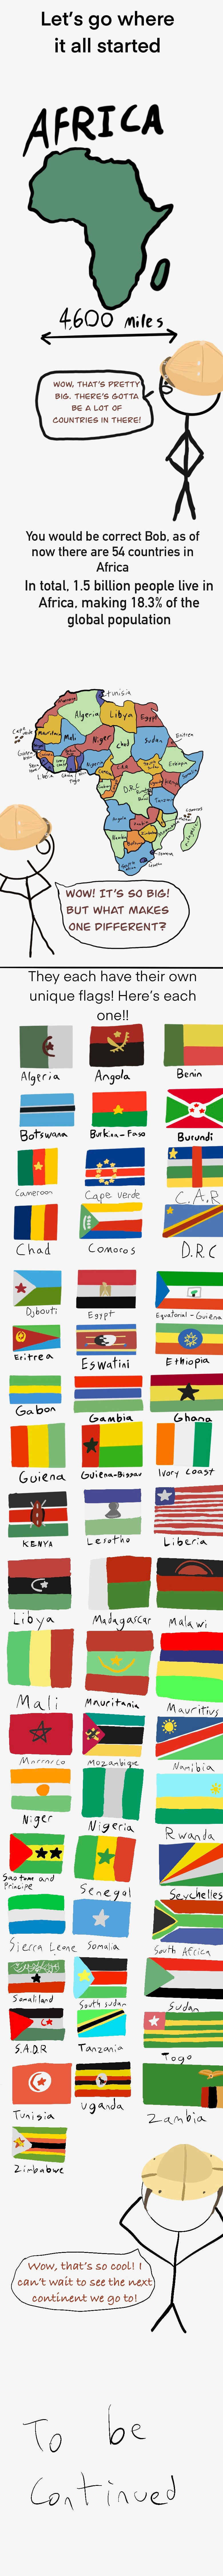 Let's go where
it all started
AFRICA
4,600 miles
WOW, THAT'S PRETTY
BIG. THERE'S GOTTA
BE A LOT OF
COUNTRIES IN THERE!
You would be correct Bob, as of
now there are 54 countries in
Africa
In total, 1.5 billion people live in
Africa, making 18.3% of the
global population
tunisia
Algeria Libya Egypt
Cape verde
Mali Niger Chad Sudan Eritrea
Nigeria Ethiopia
D.R.C
Tanzania
Angola
Comoros
WOW! IT'S SO BIG!
BUT WHAT MAKES
ONE DIFFERENT?
They each have their own
unique flags! Here's each
one!!
Algeria Angola Benin
Botswana Burkina-Faso Burundi
Cameroon Cape verde C.A.R
Chad Comoros D.R.C
Djbouti Egypt Equatorial-Guiena
Eritrea Eswatini Ethiopia
Gabon Gambia Ghana
Guiena Guiena-Bissau Ivory Coast
KENYA Lesotho Liberia
Libya Madagascar Malawi
Mali Mauritania Mauritius
Morrocco Mozanbique Namibia
Niger Nigeria Rwanda
Sao tome and
Principe Senegal Seychelles
Sierra Leone Somalia South Africa
Somaliland South sudan Sudan
S.A.D.R Tanzania Togo
Tunisia uganda Zambia
Zimbabwe
Wow, that's so cool! I
can't wait to see the next
continent we go to!
To be
Continued